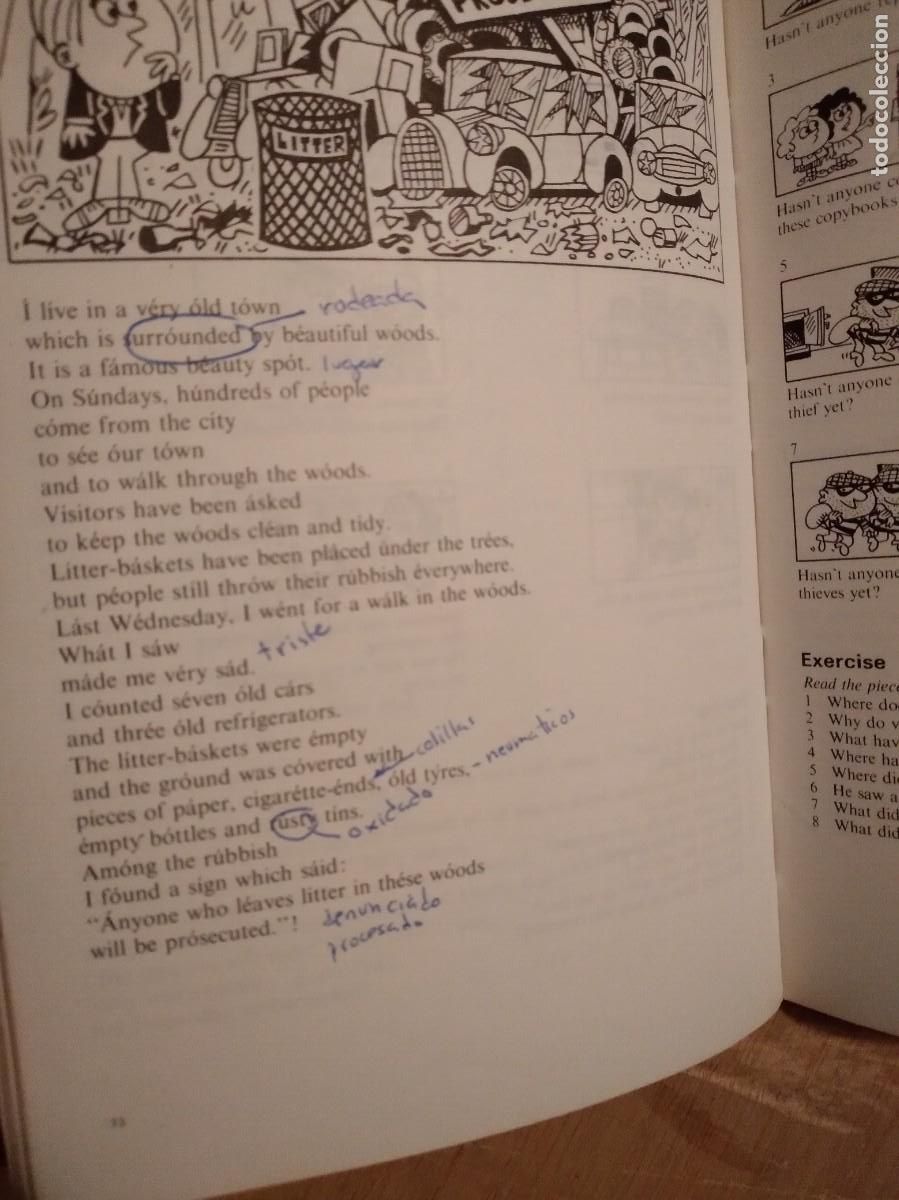 LITTER
Í líve in a véry óld tówn rodeada
which is surróunded by béautiful wóods.
It is a fámous béauty spót. lugar
On Súndays, húndreds of péople
cóme from the cíty
to sée óur tówn
and to wálk through the wóods.
Vísitors have been ásked
to kéep the wóods cléan and tídy.
Lítter-báskets have been pláced únder the trées,
but péople still thrów their rúbbish éverywhere.
Lást Wédnesday, I wént for a wálk in the wóods.
Whát I sáw
máde me véry sád. triste
I cóunted séven óld cárs
and thrée óld refrígerators.
The lítter-báskets were émpty
and the gróund was cóvered with colillas
pieces of páper, cigarétte-énds, óld týres, - neumaticos
émpty bóttles and rústy tíns. oxidado
Amóng the rúbbish
I fóund a sign which sáid:
“Ányone who léaves litter in thése wóods
will be prósecuted.”! denunciado
procesado
33
Hasn't anyone
3
Hasn't anyone
these copybooks
5
Hasn't anyone
thief yet?
7
Hasn't anyone
thieves yet?
Exercise
Read the piece
1 Where do
2 Why do
3 What
4 Where
5 Where
6 He saw a
7 What did
8 What did
todocoleccion